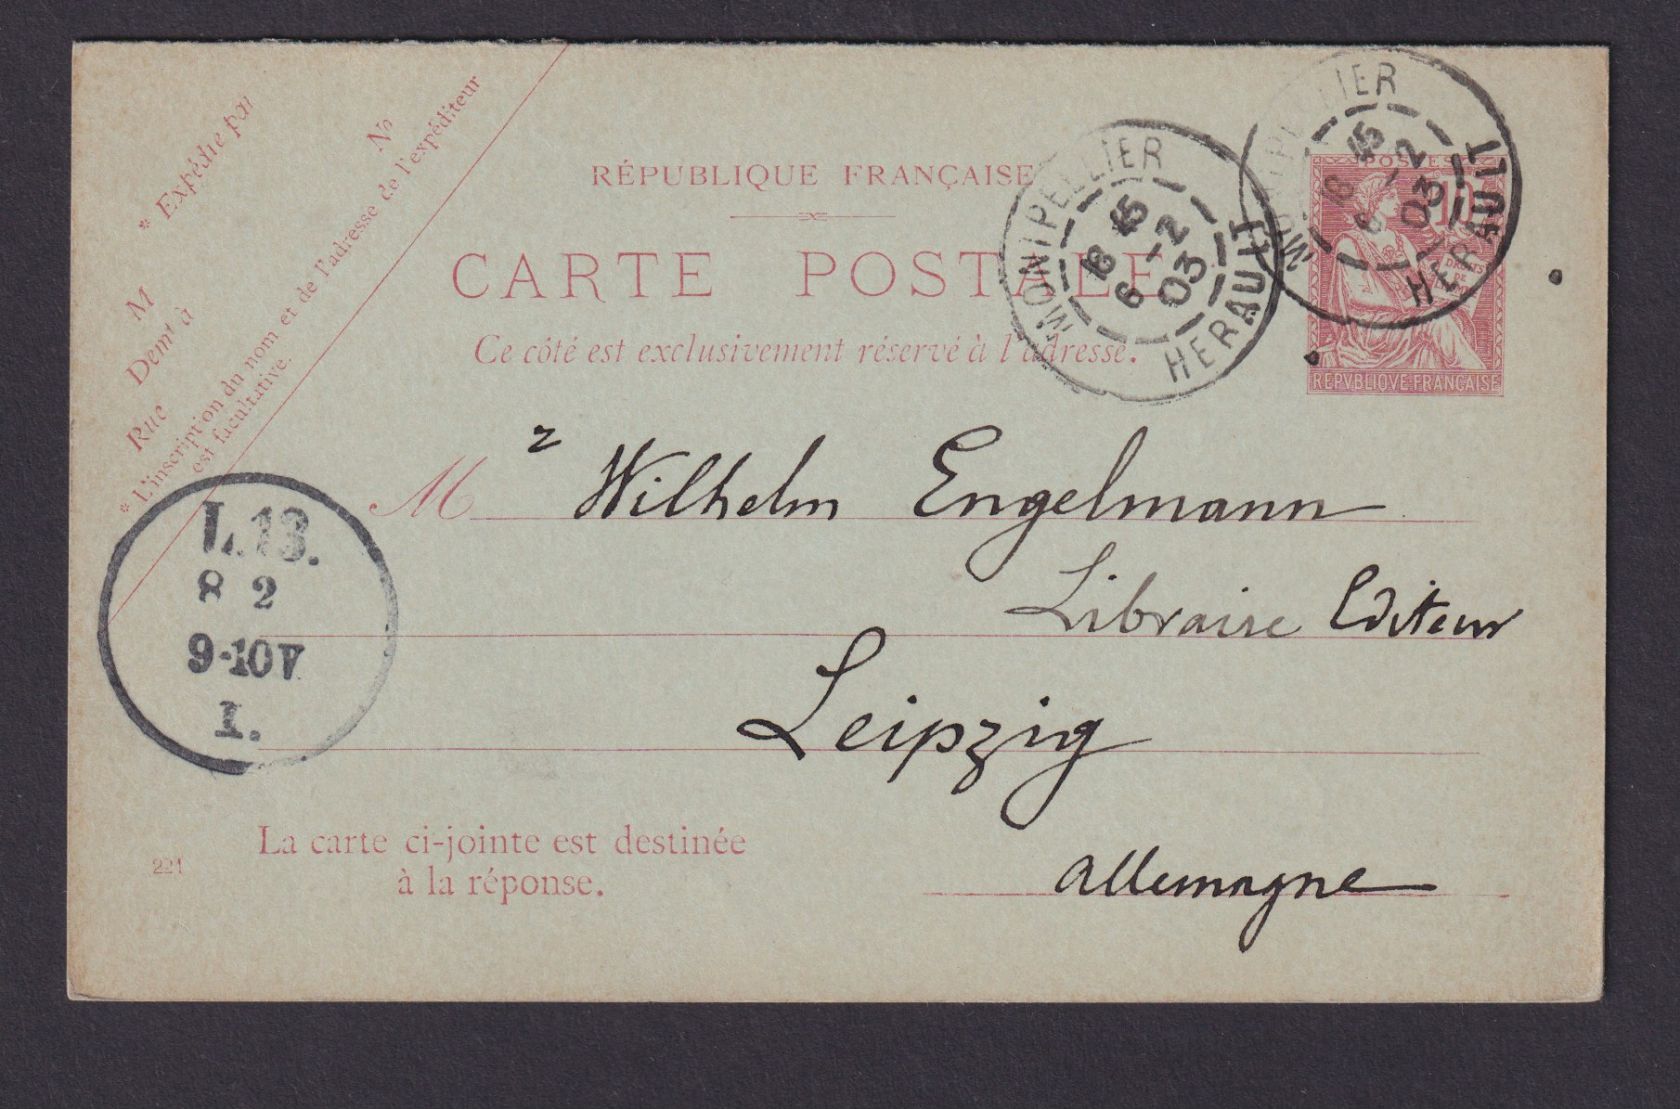 * Expédié par
M
Demt à
Rue
No
* L'inscription du nom et de l'adresse de l'expéditeur
est facultative.
RÉPUBLIQUE FRANÇAISE
CARTE POSTALE
Ce côté est exclusivement réservé à l'adresse.
MONTPELLIER
18 15
6 -2
03
HERAULT
MONTPELLIER
18 15
6 -2
03
HERAULT
POSTES
10
DROITS
DE
REPVBLIQVE·FRANÇAISE
M r Wilhelm Engelmann
Libraire Editeur
Leipzig
Allemagne
L.13.
8 2
9-10V
1.
La carte ci-jointe est destinée
à la réponse.
221